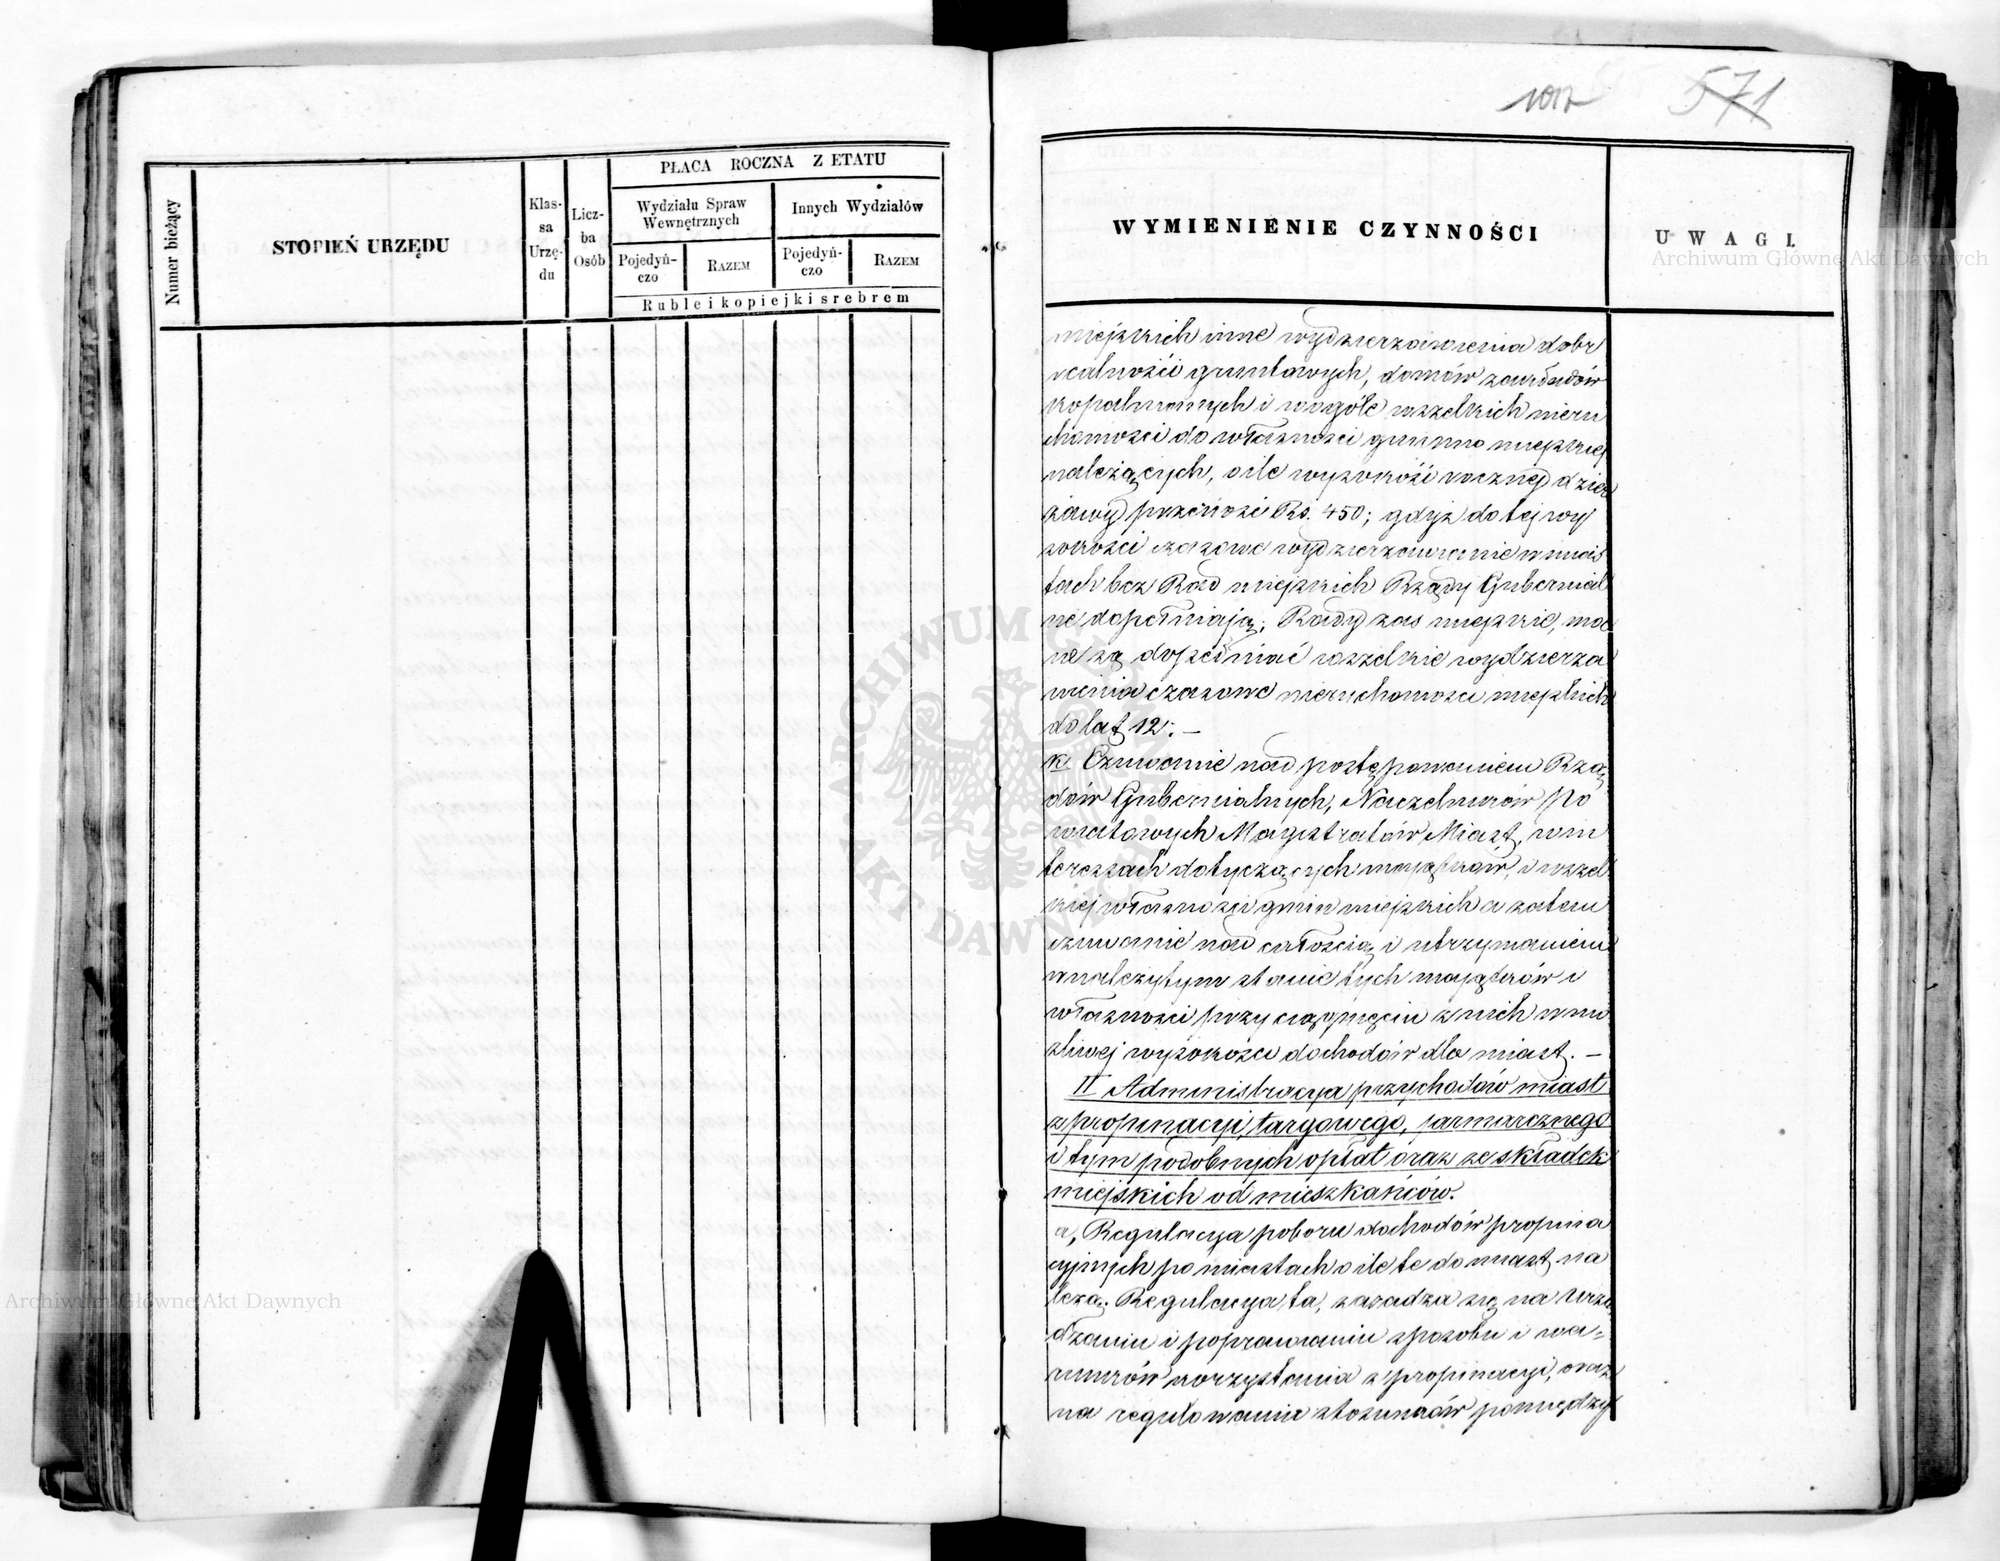 Numer bieżący
STOPIEŃ URZĘDU
Klas-
sa
Urzę-
du
Licz-
ba
Osób
PŁACA ROCZNA Z ETATU
Wydziału Spraw
Wewnętrznych
Innych Wydziałów
Pojedyń-
czo
RAZEM
Pojedyń-
czo
RAZEM
Ruble i kopiejki srebrem
1012 571
WYMIENIENIE CZYNNOŚCI
UWAGI.
miejskich inne wydzierżawienia dobr
realności gruntowych, domów zakładów
kopalnianych i wogóle wszelkich nieru
chomości do własności gminno miejskiej
należących, o ile wysokość rocznej dzier
żawy przenosi Rs. 450; gdyż do tej wy
sokości czasowe wydzierżawienie w mias
tach bez Rad miejskich Rządy Gubernial
ne dopełniają; Rady zas miejskie, moc
ne są dopełniać wszelkie wydzierża
wienia czasowe nieruchomości miejskich
do lat 12: —
k Czuwanie nad postępowaniem Rzą
dów Gubernialnych, Naczelników Po
wiatowych Magistratów Miast, w in
teressach dotyczących majątków, i wszel
kiej własności gmin miejskich a zatem
czuwanie nad całością i utrzymaniem
w należytym stanie tych majątków i
własności przy ciągnięciu z nich w mo
żliwej wysokości dochodów dla miast. —
II Administracya przychodów miast
z propinacyi, targowego, jarmarcznego
i tym podobnych opłat oraz ze składek
miejskich od mieszkańców.
a, Regulacya poboru dochodów propina
cyjnych po miastach o ile te do miast na
leżą. Regulacya ta, zasadza się na urzą
dzaniu i poprawianiu sposobu i wa-
runków korzystania z propinacyi, oraz
na regulowaniu stosunków pomiędzy
Archiwum Główne Akt Dawnych
ARCHIWUM GŁÓWNE AKT DAWNYCH
Archiwum Główne Akt Dawnych